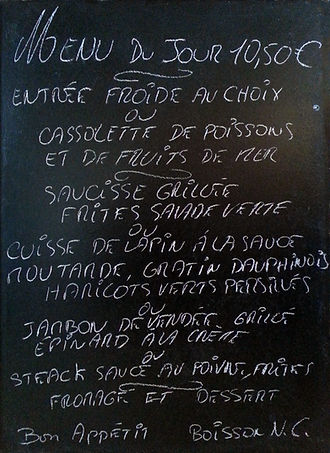 MENU DU JOUR 10,50€
ENTRÉE FROIDE AU CHOIX
OU
CASSOLETTE DE POISSONS
ET DE FRUITS DE MER
SAUCISSE GRILLÉE
FRITES SALADE VERTE
OU
CUISSE DE LAPIN À LA SAUCE
MOUTARDE, GRATIN DAUPHINOIS
HARICOTS VERTS PERSILLÉS
OU
JAMBON DE VENDÉE GRILLÉ
EPINARD A LA CRÈME
OU
STEACK SAUCE AU POIVRE, FRITES
FROMAGE ET DESSERT
BON APPÉTIT BOISSON N.C.